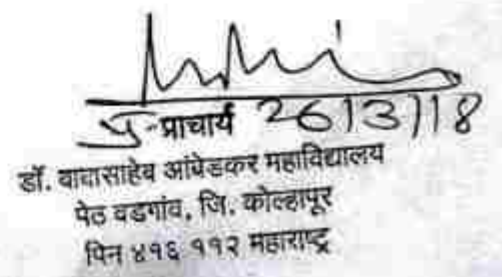 प्र-प्राचार्य 26/3/18
डॉ. बाबासाहेब आंबेडकर महाविद्यालय
पेठ वडगांव, जि. कोल्हापूर
पिन ४१६ ११२ महाराष्ट्र